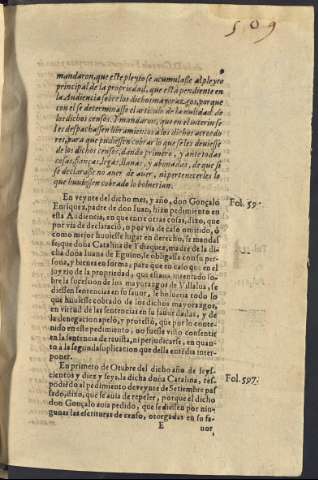 509
mandaron, que este pleyto se acumulasse al pleyto
principal de la propriedad, que està pendiente en
la Audiencia sobre los dichos mayorazgos, porque
con el se determinasse el articulo de la nulidad de
los dichos censos. Y mandaron, que en el interin se
les despachassen libramientos a los dichos acreedo
res, para que pudiessen cobrar lo que se les deuiesse
de los dichos censos, dando primero, y ante todas
cosas, fianças, legas, llanas, y abonadas, de que si
se declarasse no auer de auer, ni pertenecerles lo
que huuiessen cobrado lo boluerian.
En veynte del dicho mes, y año, don Gonçalo
Fol. 59
Enriquez, padre de don Iuan, hizo pedimiento en
esta Audiencia, en que entre otras cosas, dixo, que
por via de declaració, o por via de caso omitido, ò
como mejor huuiesse lugar en derecho, se mandas
se, que doña Catalina de Ydiaquez, madre de la di
cha doña Iuana de Eguino, se obligasse con su per-
sona, y bienes en forma, para que en caso que en el
joyzio de la propriedad, que estaua intentado so-
bre la sucession de los mayorazgos de Villalua, se
diessen sentencias en su fauor, le bolueria todo lo
que huuiesse cobrado de los dichos mayorazgos,
en virtud de las sentencias en su fauor dadas, y de
la denegacion apelò, y protestò, que por lo conte-
nido en este pedimento, no fuesse visto consentir
en la sentencia de reuista, ni perjudicarse, en quan-
to à la segunda suplicacion que della entédia inter-
poner.
En primero de Otubre del dicho año de seys-
cientos y diez y seys, la dicha doña Catalina, res-
Fol. 597.
podiédo al pedimento de veynte de Setiembre pas
sado, dixo, que se auia de repeler, porque el dicho
don Gonçalo auia pedido, que se diessen por nin-
gunas las escrituras de censo, otorgadas en su fa-
E
uor